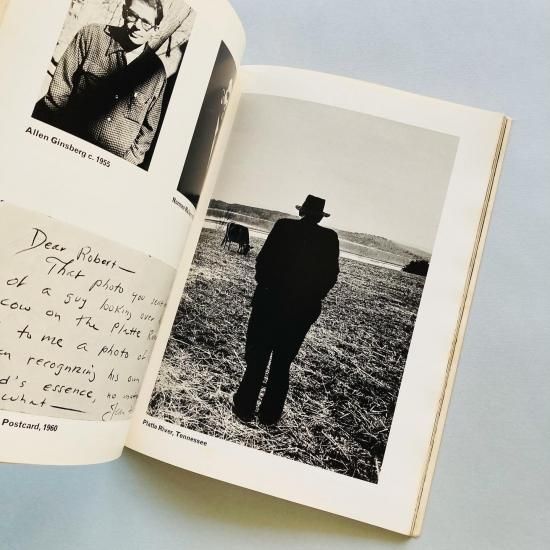 Allen Ginsberg c. 1955
Norman
Dear Robert—
That photo you sent
of a guy looking over
cow on the Platte
to me a photo of
recognizing his own
essence, no
what—
Postcard, 1960
Platte River, Tennessee